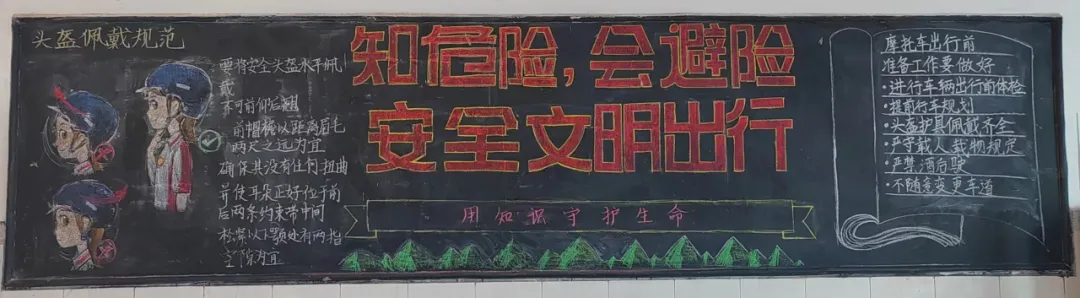 头盔佩戴规范
要将安全头盔水平佩
戴
不可前仰后翘
前帽檐以距离眉毛
两尺之远为宜
确保其没有任何扭曲
并使耳朵正好位于前
后两条约束带中间
松紧以下颚处有两指
空隙为宜
知危险,会避险
安全文明出行
用知识守护生命
摩托车出行前
准备工作要做好
·进行车辆出行前体检
·提前行车规划
·头盔护具佩戴齐全
·严守载人载物规定
·严禁酒后驶
·不随意变更车道